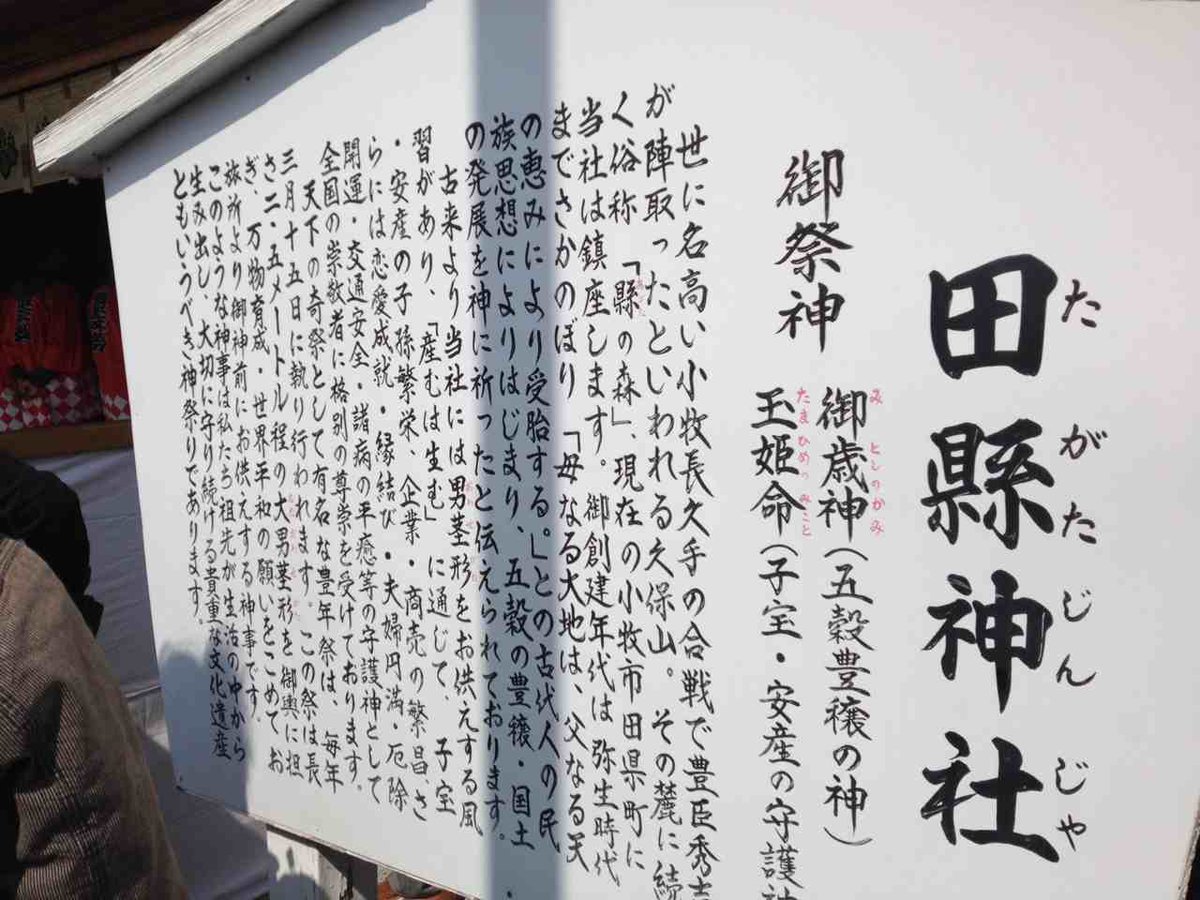 田縣神社
たがたじんじゃ
御祭神
御歳神（五穀豊穣の神）
みとしのかみ
玉姫命（子宝・安産の守護神
たまひめのみこと
世に名高い小牧長久手の合戦で豊臣秀吉
が陣取ったといわれる久保山。その麓に続
く俗称「縣の森」、現在の小牧市田県町に
当社は鎮座します。御創建年代は弥生時代
までさかのぼり「母なる大地は、父なる天
の恵みにより受胎する。」との古代人の民
族思想によりはじまり、五穀の豊穣・国土
の発展を神に祈ったと伝えられております。
古来より当社には男茎形をお供えする風
習があり、「産むは生む」に通じて、子宝
・安産の子孫繁栄、企業・商売の繁昌、さ
らには恋愛成就・縁結び・夫婦円満・厄除
開運・交通安全・諸病の平癒等の守護神として
全国の崇敬者に格別の尊崇を受けております。
天下の奇祭として有名な豊年祭は、毎年
三月十五日に執り行われます。この祭は長
さ二・五メートル程の大男茎形を御輿に担
ぎ、万物育成・世界平和の願いをこめてお
旅所より御神前にお供えする神事です。
このような神事は私たち祖先が生活の中から
生み出し、大切に守り続ける貴重な文化遺産
ともいうべき神祭りであります。